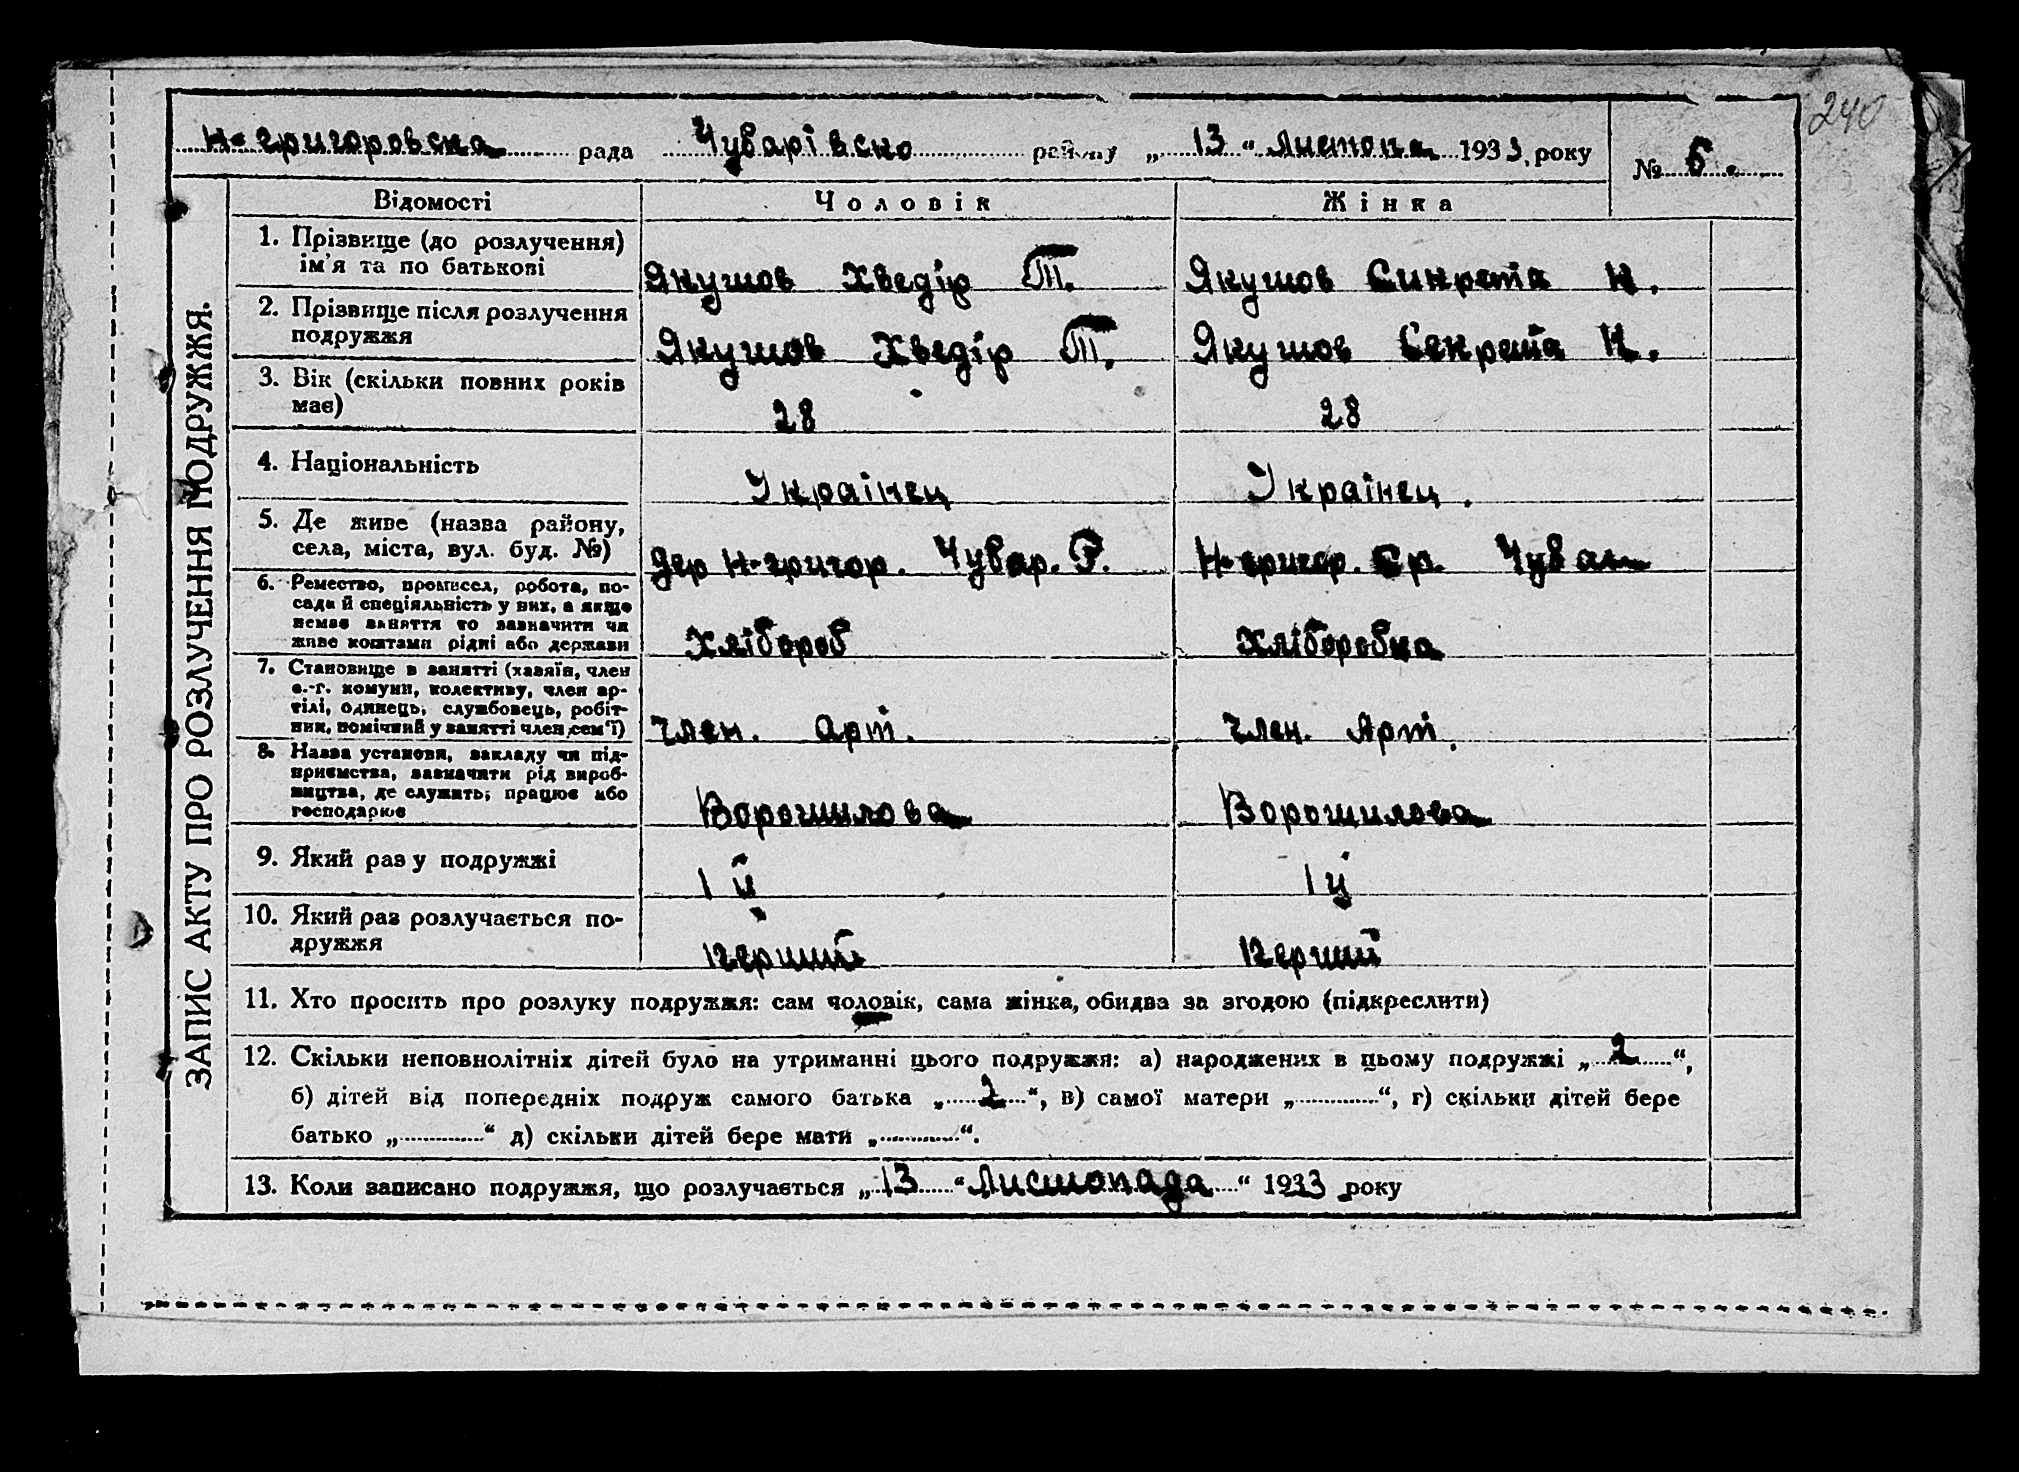 240
Н-григоровска рада Чубарівско району „ 13 “ листопа 1933 року № 5.
Відомості Чоловік Жінка
ЗАПИС АКТУ ПРО РОЗЛУЧЕННЯ ПОДРУЖЖЯ.
1. Прізвище (до розлучення)
ім'я та по батькові
Якушов Хведір Т. Якушов Синрета К.
2. Прізвище після розлучення
подружжя
Якушов Хведір Т. Якушов Секрета К.
3. Вік (скільки повних років
має)
28 28
4. Національність
Українец Українец.
5. Де живе (назва району,
села, міста, вул. буд. №)
дер Н-григор. Чубар. Р. Н-григор. Ср. Чуба
6. Ремество, промисел, робота, по-
сада й спеціяльність у них, а якщо
немає заняття то зазначити чи
живе коштами рідні або держави
Хлібороб Хліборобка
7. Становище в занятті (хазяїн, член
с.-г. комуни, колективу, член ар-
тілі, одинець, службовець, робіт-
ник, помічний у занятті член сем'ї)
член. арт. член. Арт.
8. Назва установи, закладу чи під-
приємства, зазначити рід вироб-
ництва, де служить, працює або
господарює
Ворошилова Ворошилова
9. Який раз у подружжі
1й 1й
10. Який раз розлучається по-
дружжя
перший перший
11. Хто просить про розлуку подружжя: сам чоловік, сама жінка, обидва за згодою (підкреслити)
12. Скільки неповнолітніх дітей було на утриманні цього подружжя: а) народжених в цьому подружжі „ 2 “,
б) дітей від попередніх подруж самого батька „ 2 “, в) самої матери „ “, г) скільки дітей бере
батько „ “ д) скільки дітей бере мати „ “.
13. Коли записано подружжя, що розлучається „ 13 “ Листопада “ 1933 року